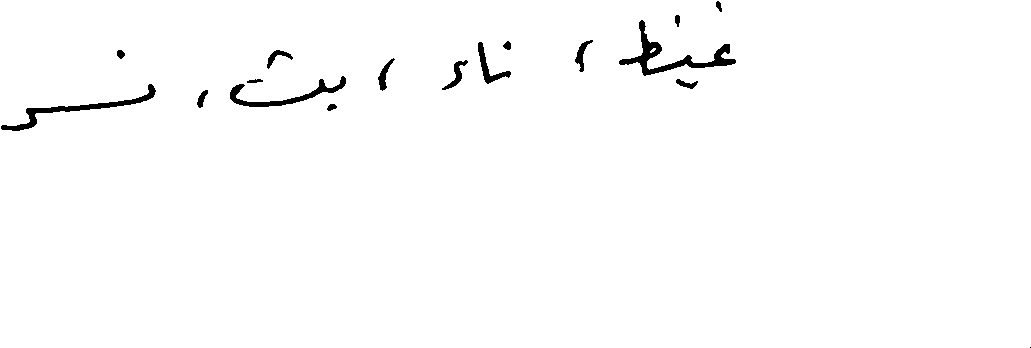 غيظ ، نار ، بث ، نسر